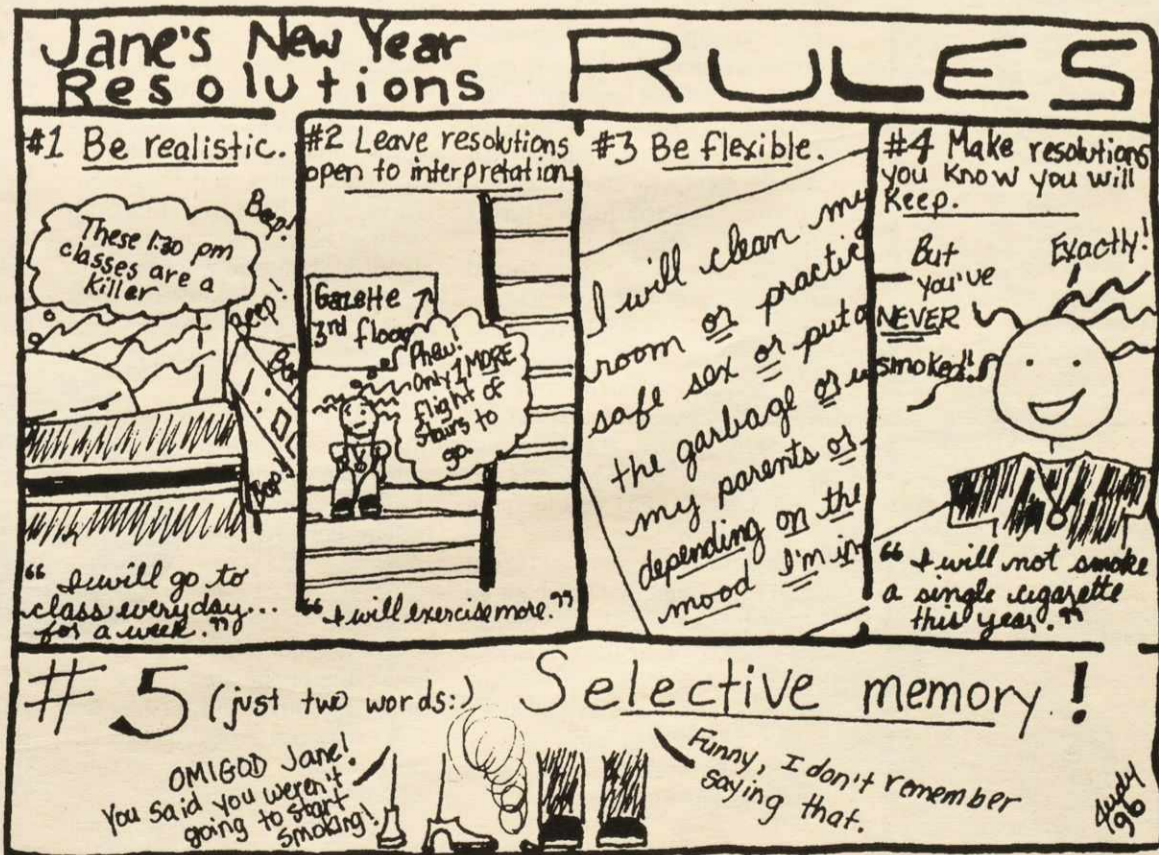 Jane's New Year
Resolutions
RULES
#1 Be realistic.
These 1:30 pm
classes are a
killer
Beep!
Beep!
Bop!
"I will go to
class everyday...
for a week."
#2 Leave resolutions
open to interpretation
Gazette
3rd floor
Phew!
Only 1 MORE
flight of
stairs to
go.
"I will exercise more."
#3 Be flexible.
I will clean my
room or practic
safe sex or put o
the garbage or
my parents or
depending on the
mood I'm in
#4 Make resolutions
you know you will
keep.
But
you've
NEVER
smoked!
Exactly!
"I will not smoke
a single cigarette
this year."
#5 (just two words:) Selective memory!
OMIGOD Jane!
You said you weren't
going to start
smoking!
Funny, I don't remember
saying that.
Judy
96